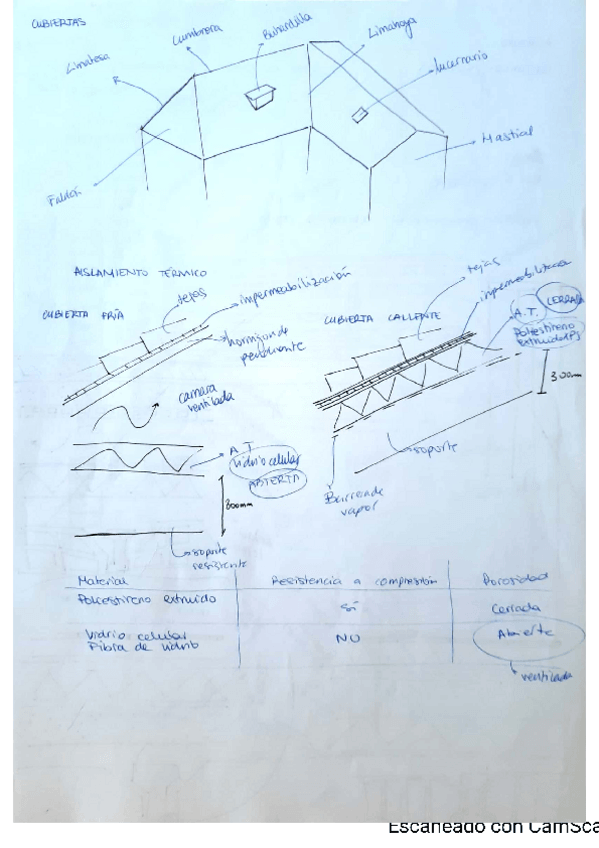 CUBIERTAS
Cumbrera
Buhardilla
Limahoya
Limatesa
lucernario
Mastial
Faldón
AISLAMIENTO TÉRMICO
CUBIERTA FRÍA
tejas
impermeabilización
hormigon de
pendiente
camara
ventilada
A.T.
Vidrio celular
ABIERTA
300mm
soporte
resistente
CUBIERTA CALIENTE
tejas
A.T. CERRADA
Poliestireno
300mm
soporte
Barrera de
vapor
Material Resistencia a compresión Porosidad
Poliestireno extruido SÍ Cerrada
Vidrio celular
Fibra de vidrio NO Abierta
ventilada
Escaneado con CamSca